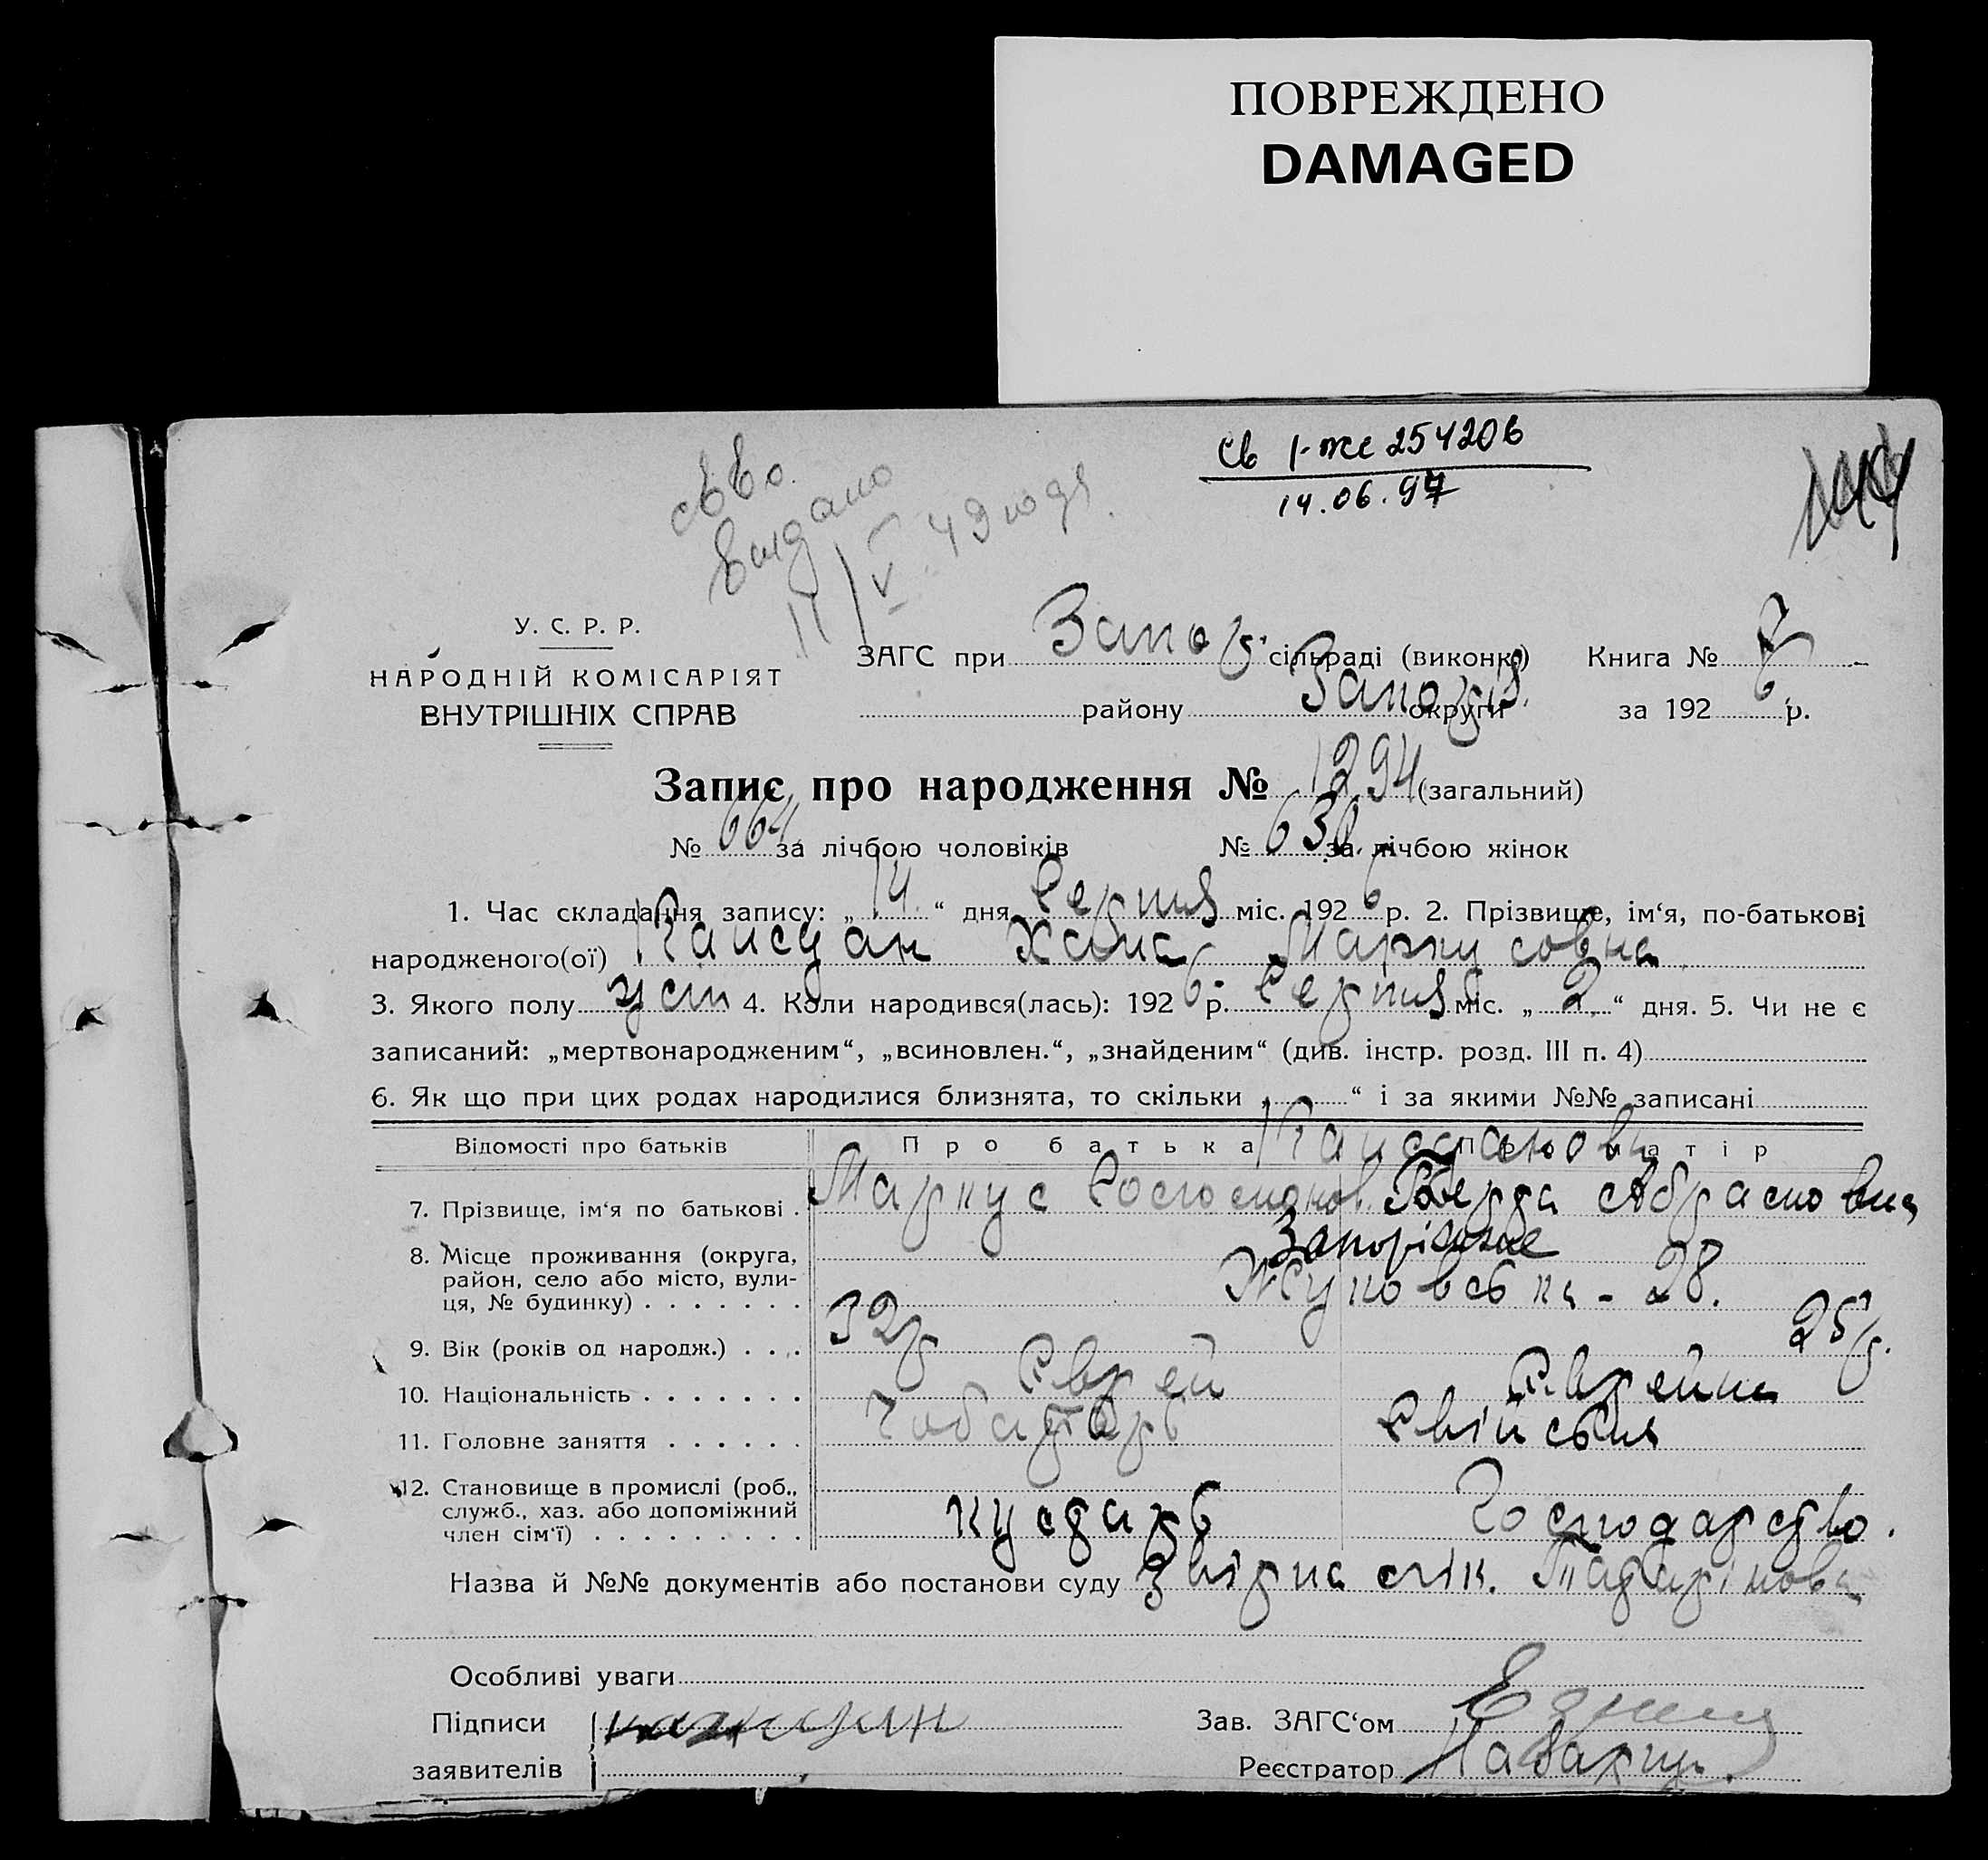 ПОВРЕЖДЕНО
DAMAGED
Св 1-же 254206
14.06.97
Св-во
выдано
11/V 49 года.
У. С. Р. Р.
НАРОДНІЙ КОМІСАРІЯТ
ВНУТРІШНІХ СПРАВ
ЗАГС при Запор. сільраді (виконк.) Книга № 7
району Запоріз. округи за 1926 р.
Запис про народження № 1294 (загальний)
№ 664 за лічбою чоловіків № 630 за лічбою жінок
1. Час складання запису: „ 14 “ дня Серпня міс. 1926 р. 2. Прізвище, ім‘я, по-батькові
народженого(ої) Маркусовна
3. Якого полу жін 4. Коли народився(лась): 1926 р. Серпня міс. „ 2 “ дня. 5. Чи не є
записаний: „мертвонародженим“, „всиновлен.“, „знайденим“ (див. інстр. розд. III п. 4)
6. Як що при цих родах народилися близнята, то скільки „ “ і за якими №№ записані
Відомості про батьків Про батька Про матір
7. Прізвище, ім‘я по батькові . Маркус Соломонов. Абрамовна
8. Місце проживання (округа, Запоріжжє
район, село або місто, вули-
ця, № будинку) . . . . . . . Жуковська - 28.
9. Вік (років од народж.) . . . 32 р 25 р.
10. Національність . . . . . . . Єврей Єврейка
11. Головне заняття . . . . . . Чоботарь Свійське
12. Становище в промислі (роб.,
служб., хаз. або допоміжний
член сім‘ї) . . . . . . . . . кустарь Господарство.
Назва й №№ документів або постанови суду Звірка лік.
Особливі уваги
Підписи
заявителів
Зав. ЗАГС‘ом
Реєстратор